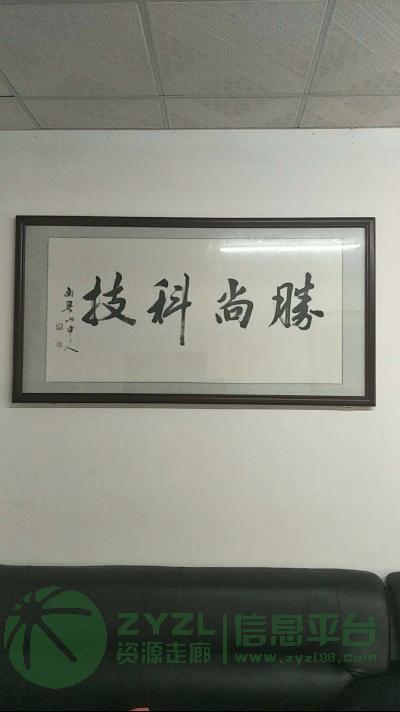 勝尚科技
南粤山中人
ZYZL|信息平台
资源走廊 www.zyzl88.com